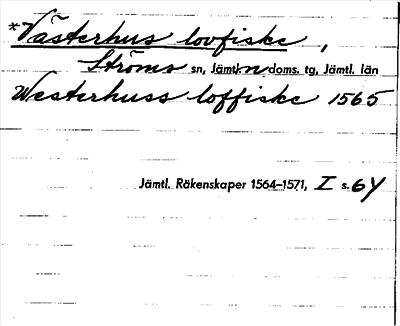 *Västerhus lovfiske,
Ströms sn, Jämtl. n doms. tg, Jämtl. län
Westerhuss loffiske 1565
Jämtl. Räkenskaper 1564–1571, I s. 64